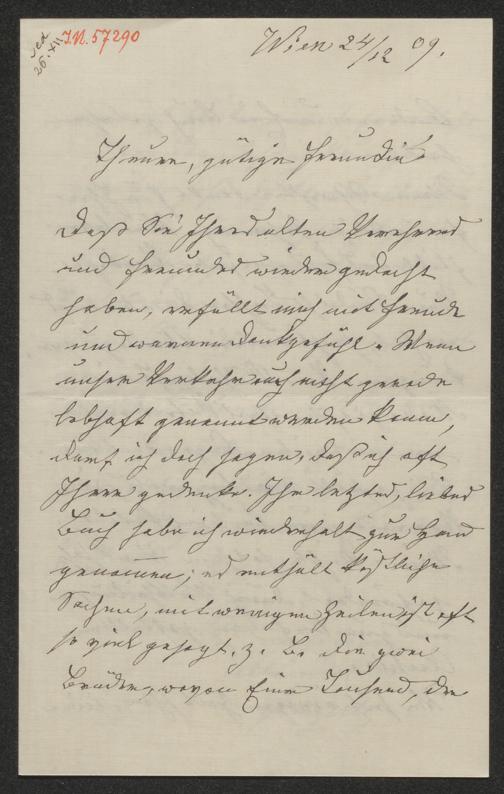 red
26.XII
I.N. 57290
Wien 24/12 09.
Theure, gütige Freundin
Daß Sie Ihres alten Verehrers
und Freundes wieder gedacht
haben, erfüllt mich mit Freude
und warmen Dankgefühl. Wenn
unser Verkehr auch nicht gerade
lebhaft genannt werden kann,
darf ich doch sagen, daß ich oft
Ihrer gedenke. Ihr letztes, liebes
Buch habe ich wiederholt zur Hand
genommen; es enthält köstliche
Sachen, mit wenigen Zeilen ist oft
so viel gesagt, z. B. die zwei
Brüder, wovon Einer Tausend, der